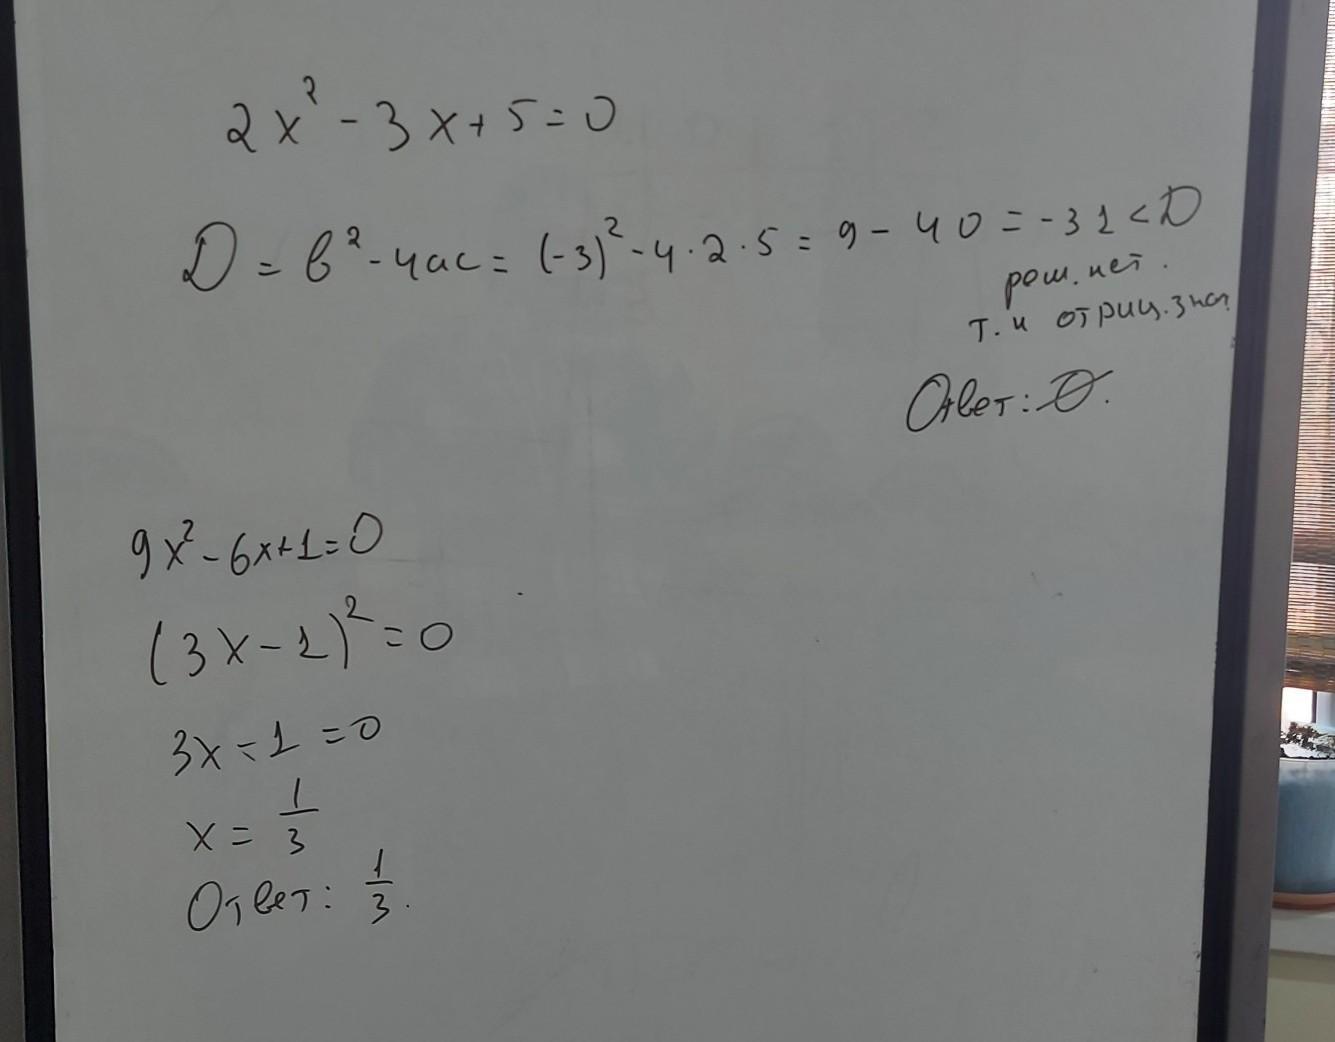 2x² - 3x + 5 = 0
D = b² - 4ac = (-3)² - 4 · 2 · 5 = 9 - 40 = -31 < D
реш. нет.
т.и отриц. знач
Ответ: ∅.
9x² - 6x + 1 = 0
(3x - 1)² = 0
3x - 1 = 0
x = 1/3
Ответ: 1/3.